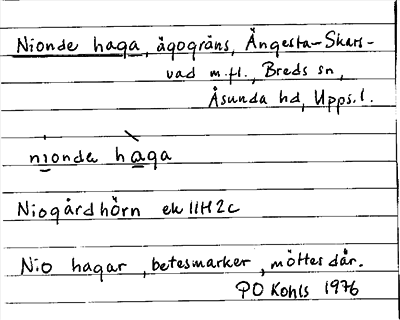 Nionde haga, ägogräns, Ängesta-Skars-
vad m.fl., Breds sn,
Åsunda hd, Upps.l.
nionde haga
Niogårdhörn ek 11H2c
Nio hagar, betesmarker, möttes där.
PO Kohls 1976